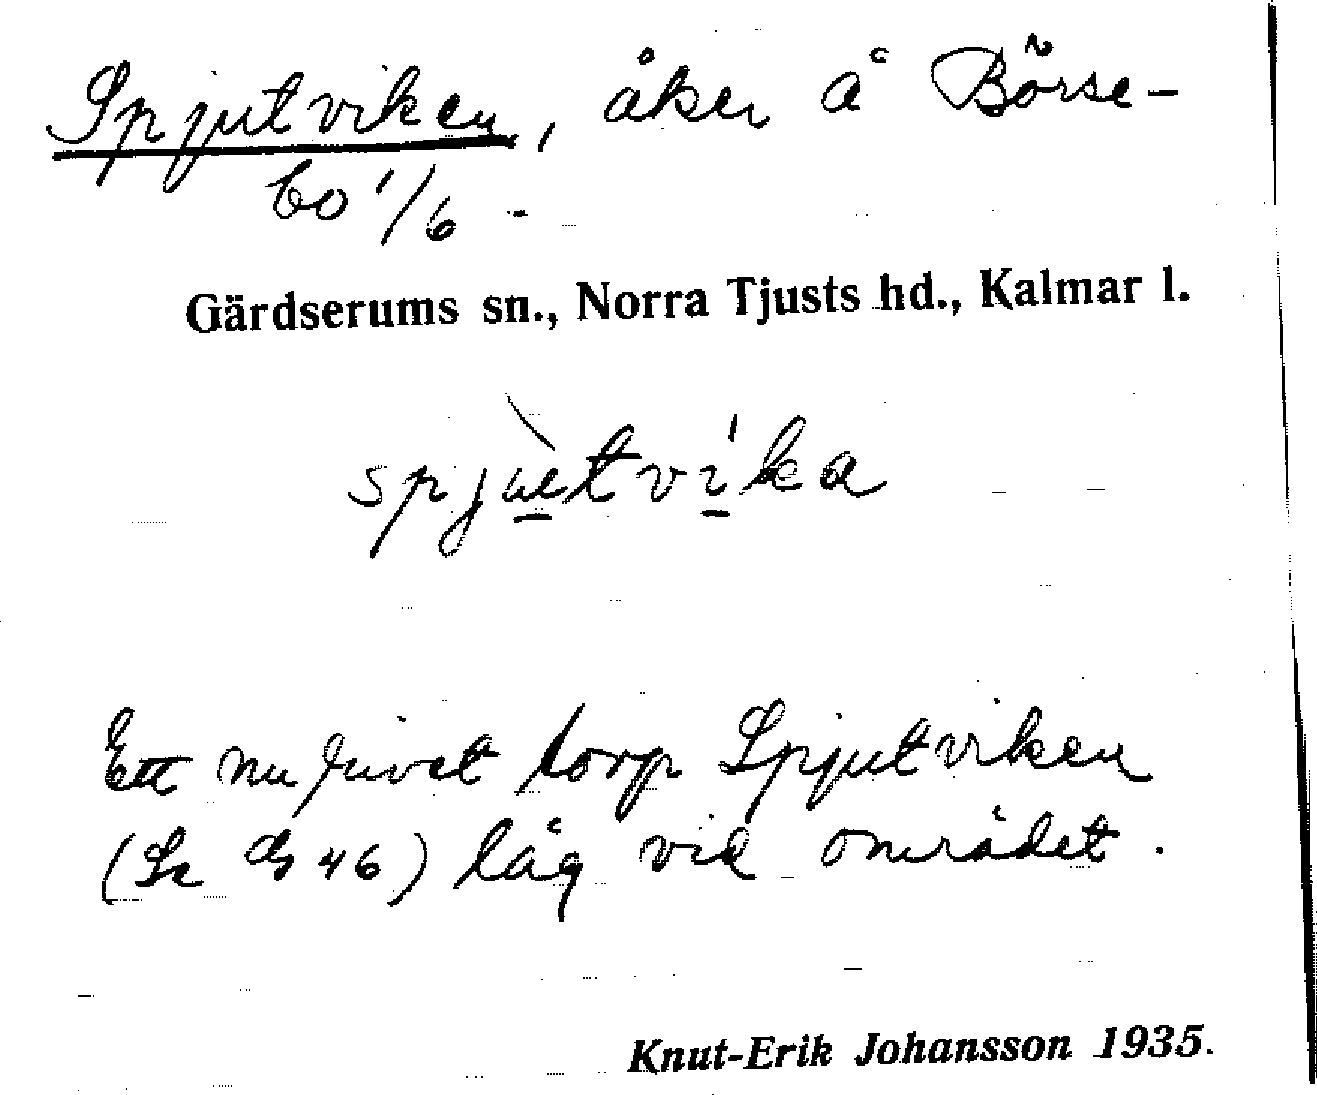 Spjutviken, åker å Börse-
bo 1/6 -
Gärdserums sn., Norra Tjusts hd., Kalmar l.
spjùtvíka
Ett nu rivet torp Spjutviken
(Sk ds 46) låg vid området.
Knut-Erik Johansson 1935.